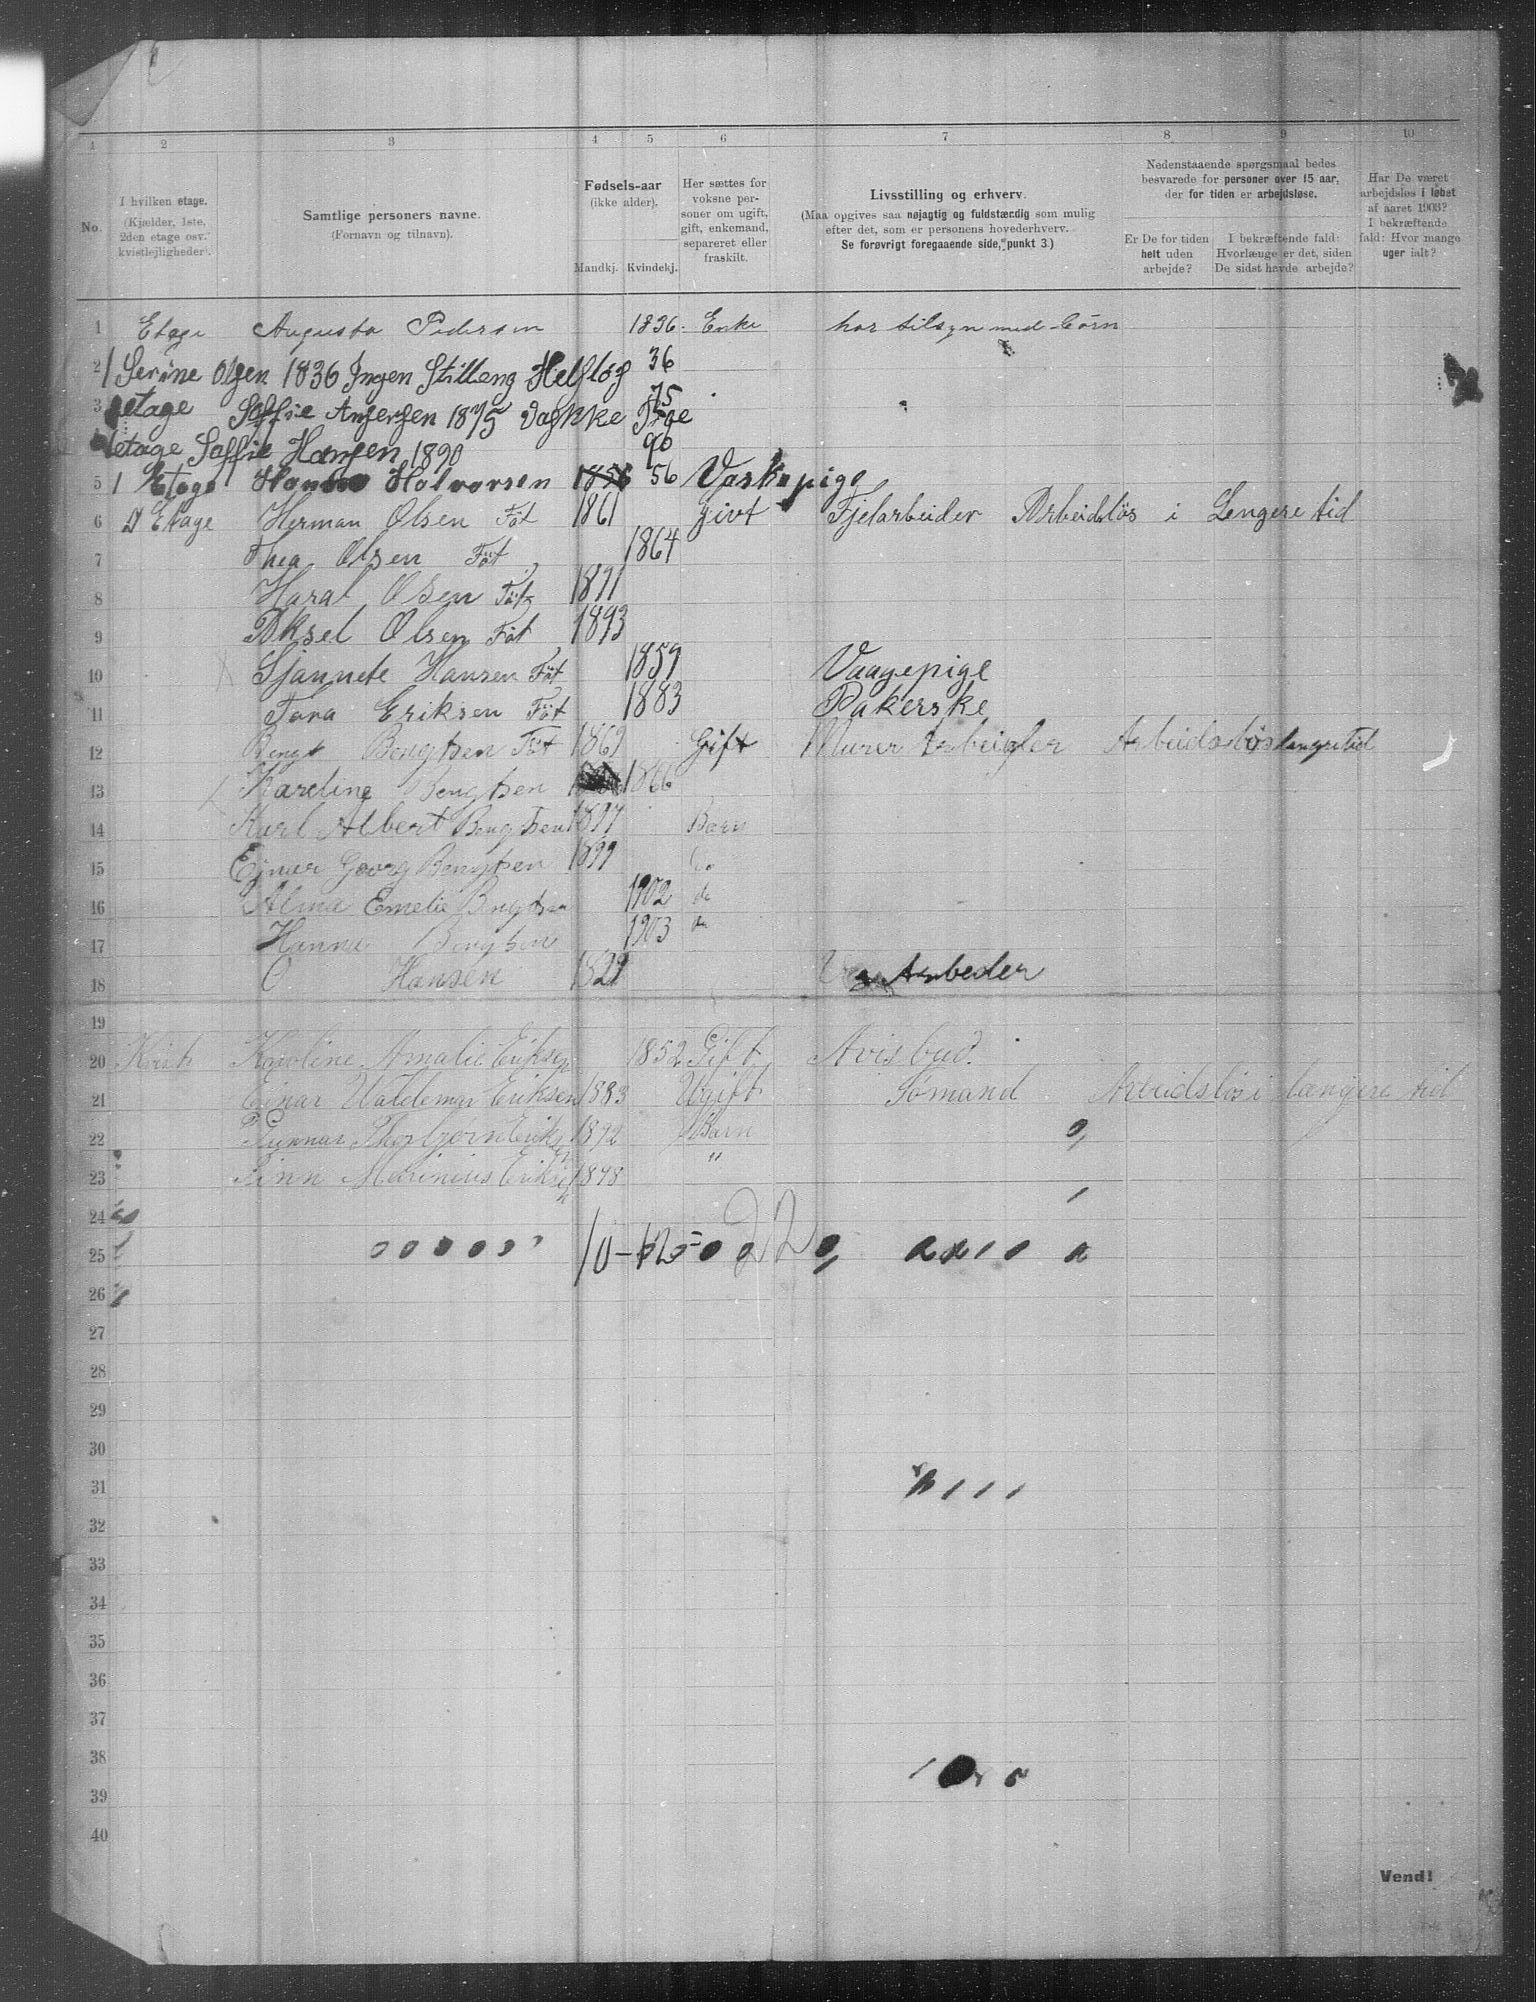 1 2 3 4 5 6 7 8 9 10
No. I hvilken etage. (Kjælder, 1ste, 2den etage osv. kvistlejligheder). Samtlige personers navne. (Fornavn og tilnavn). Fødsels-aar (ikke alder). Mandkj. Kvindekj. Her sættes for voksne personer om ugift, gift, enkemand, separeret eller fraskilt. Livsstilling og erhverv. (Maa opgives saa nøjagtig og fuldstændig som mulig efter det, som er personens hovederhverv. Se forøvrigt foregaaende side, punkt 3.) Nedenstaaende spørgsmaal bedes besvarede for personer over 15 aar, der for tiden er arbejdsløse. Er De for tiden helt uden arbejde? I bekræftende fald: Hvorlænge er det, siden De sidst havde arbejde? Har De været arbejdsløs i løbet af aaret 1903? I bekræftende fald: Hvor mange uger ialt?
1 Etage Augusta Pedersen 1836 Enke har tilsyn med Börn
2 1 Serine Olsen 1836 Ingen Stilleng Helslös 36
3 etage Soffie 1875 Vaskke Pige 75
etage Soffie Hansen 1890 90
5 1 Etage Halvorsen 1856 56 Vaskepige
6 Etage Herman Olsen Föt 1861 givt Fjelarbeider Arbeidslös i Lengere tid
7 Thea Olsen Föt 1864
8 Haral Olsen Föt 1891
9 Aksel Olsen Föt 1893
10 Sjannete Hansen Föt 1859 Vaagepige
11 Tora Eriksen Föt 1883 Pakerske
12 Bengt Bengtsen Föt 1869 Gift Murer Arbeider Arbeidslös längre tid
13 Kareline Bengtsen 1866
14 Karl Albert Bengtsen 1897 Barn
15 Ejnar Georg Bengtsen 1899 do
16 Alma Emelie Bengtsen 1902 do
17 Hanna Bengtsen 1903
18 O Hansen 1829 Arbeder
19
20 Kvist Karoline Amalie Eriksen 1852 Gift Avisbud.
21 Einar Valdemar Eriksen 1883 Ugift Sømand Arbeidsløs i længere tid
22 Gunnar Thorbjørn Eriksen 1892 Barn
23 Finn Marinius Eriksen 1898 "
24
25 10 - 12 = 22
26
27
28
29
30
31
32
33
34
35
36
37
38
39
40
Vend!